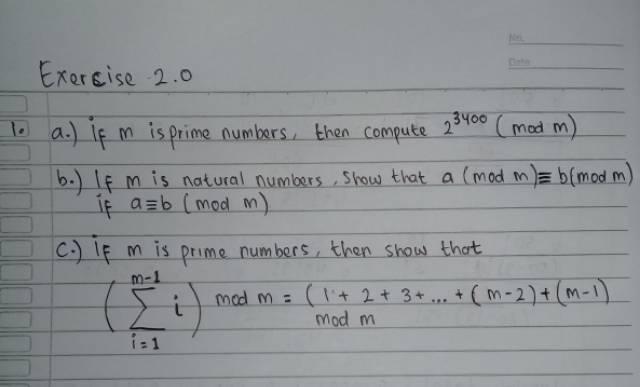 No.
Date
Exercise 2.0
1. a.) if m is prime numbers, then compute 2^3400 (mod m)
b.) If m is natural numbers, Show that a (mod m) ≡ b(mod m)
if a≡b (mod m)
c.) if m is prime numbers, then show that
m-1
(∑ i) mod m = (1 + 2 + 3 + ... + (m-2) + (m-1)
i=1
mod m